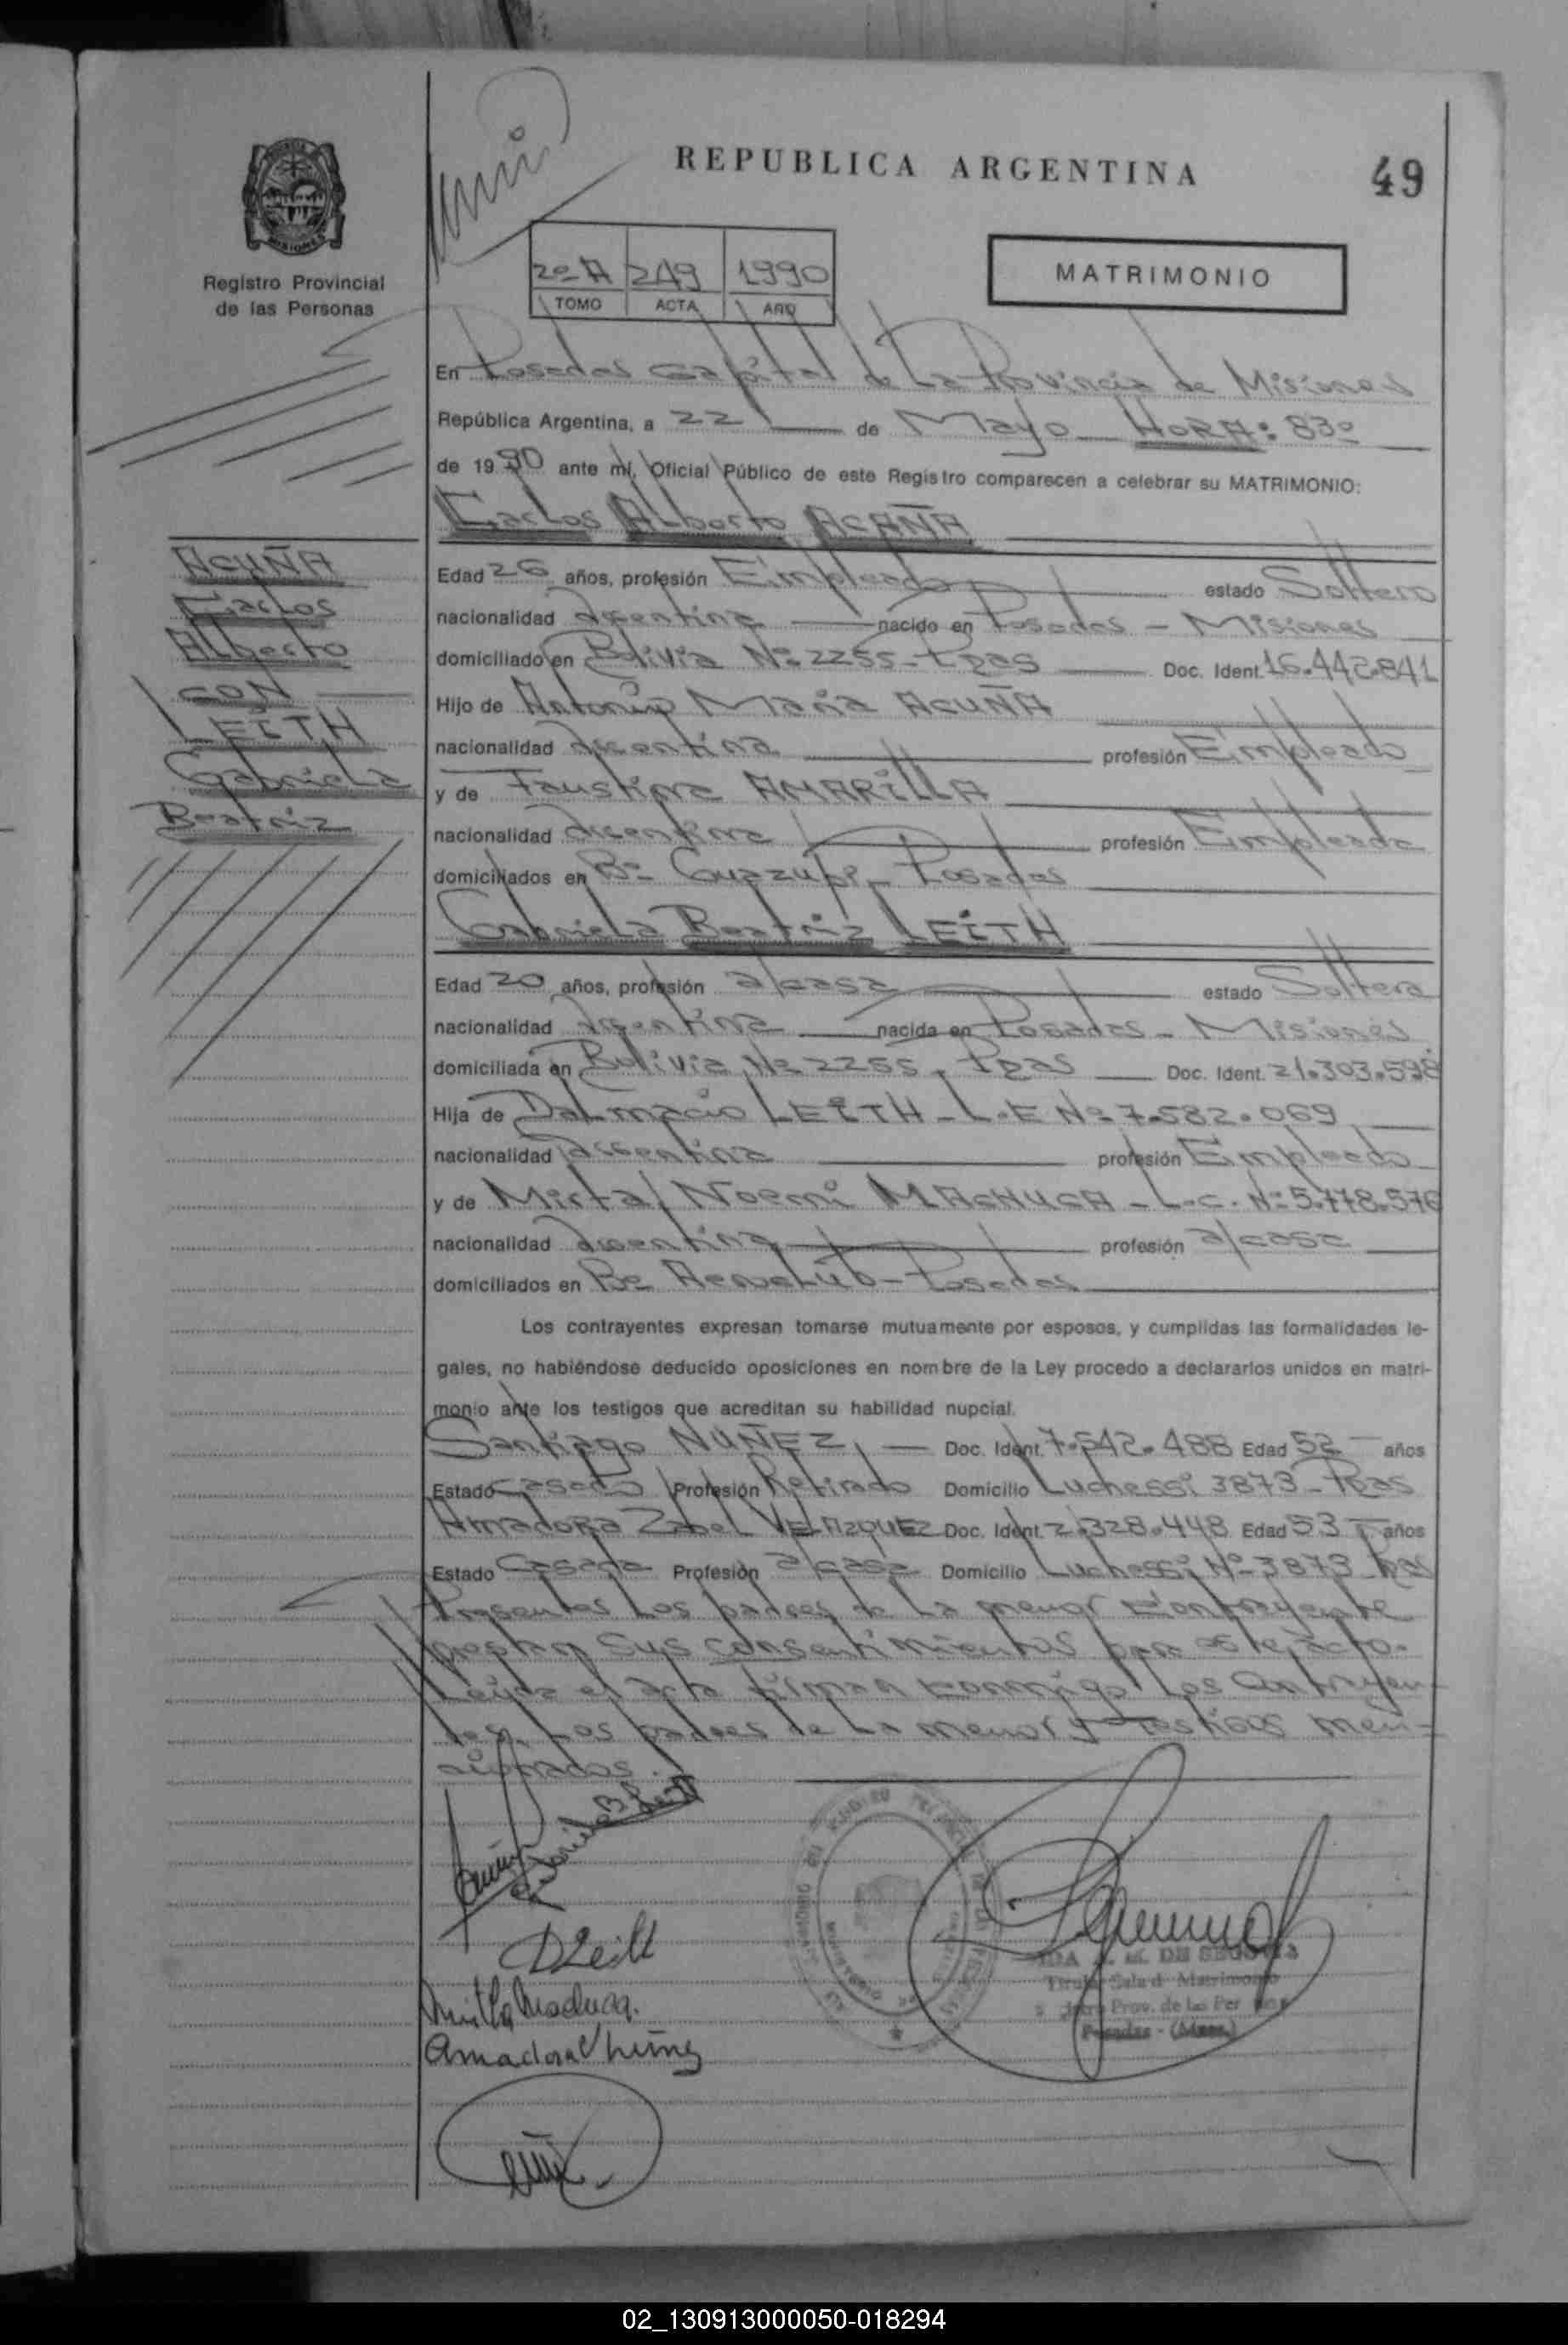 REPUBLICA ARGENTINA
49
Registro Provincial
de las Personas
2º A 249 1990
TOMO ACTA AÑO
MATRIMONIO
En Posadas Capital de La Provincia de Misiones
República Argentina, a 22 de Mayo HORA: 8 30
de 1990 ante mí, Oficial Público de este Registro comparecen a celebrar su MATRIMONIO:
Carlos Alberto ACAÑA
ACUÑA
Carlos
Alberto
CON
LEITH
Gabriela
Beatriz
Edad 26 años, profesión Empleado estado Soltero
nacionalidad Argentina nacido en Posadas - Misiones
domiciliado en Bolivia Nº 2255 - Pdas Doc. Ident. 16.442.841
Hijo de Antonio María ACUÑA
nacionalidad Argentina profesión Empleado
y de Faustina AMARILLA
nacionalidad Argentina profesión Empleada
domiciliados en Bº Guazupi - Posadas
Gabriela Beatriz LEITH
Edad 20 años, profesión a/casa estado Soltera
nacionalidad Argentina nacida en Posadas - Misiones
domiciliada en Bolivia Nº 2255 - Pdas Doc. Ident. 21.303.598
Hija de Dalmacio LEITH - L.E Nº 7.582.069
nacionalidad Argentina profesión Empleado
y de Mirta Noemi MACHUCA - L.C. Nº 5.778.576
nacionalidad Argentina profesión a/casa
domiciliados en Bº Aeroclub - Posadas
Los contrayentes expresan tomarse mutuamente por esposos, y cumplidas las formalidades le-
gales, no habiéndose deducido oposiciones en nombre de la Ley procedo a declararlos unidos en matri-
monio ante los testigos que acreditan su habilidad nupcial.
Santiago NUÑEZ Doc. Ident. 7.542.488 Edad 52 años
Estado Casado Profesión Retirado Domicilio Luchessi 3873 - Pdas
Amadora Zabel VELAZQUEZ Doc. Ident. 2.328.448 Edad 53 años
Estado Casada Profesión a/casa Domicilio Luchessi Nº 3873 Pdas
Presentes Los padres de La menor Contrayente
prestan sus consentimientos para este acto.
Leída el acta firman conmigo Los Contrayen-
tes, Los padres de La menor y testigos men-
cionados.
Gabriela B Leith
D Leith
Mirtha Machuca.
Amadora V
DE SEGOVIA
Titular Sala d Matrimonio
Prov. de las Per
Posadas - (Mnes.)
02_130913000050-018294